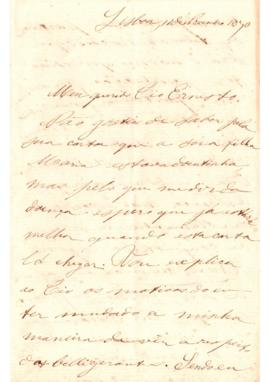 Lisboa 1 de Janeiro 1870
Meu querido Tio Ernesto.
Não gostei de saber pela
sua carta que a sua filha
Maria estava doentinha
mas pelo que me diz da
doença espero que já esteja
melhor quando esta carta
lá chegar. Vou explicar
ao Tio os motivos de eu
ter mudado a minha
maneira de vêr a respeito
dos belligerantes. Sendo eu